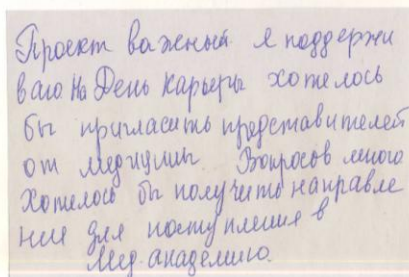 Проект важный я поддержи
ваю. На День Карьеры хотелось
бы пригласить представителей
от медицины Вопросов много
Хотелось бы получить направле
ние для поступления в
Мед. академию.